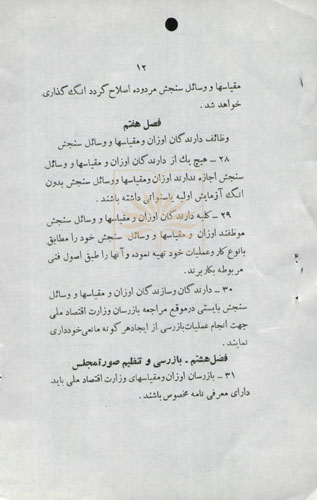 ۱۲
مقیاسها و وسائل سنجش مردوده اصلاح گردد انگ گذاری
خواهد شد.
فصل هفتم
وظائف دارندگان اوزان ومقیاسها و وسائل سنجش
۲۸ – هیچ یك از دارندگان اوزان و مقیاسها و وسائل
سنجش اجازه ندارند اوزان ومقیاسها ووسائل سنجش بدون
انگ آزمایش اولیه یاسنواتی داشته باشند.
۲۹ – کلیه دارندگان اوزان و مقیاسها و وسائل سنجش
موظفند اوزان و مقیاسها و وسائل سنجش خود را مطابق
بانوع کار وعملیات خود تهیه نموده و آنها را طبق اصول فنی
مربوطه بکاربرند.
۳۰ – دارندگان وسازندگان اوزان و مقیاسها و وسائل
سنجش بایستی درموقع مراجعه بازرسان وزارت اقتصاد ملی
جهت انجام عملیات بازرسی از ایجادهر گونه مانعی خودداری
نمایند.
فصل هشتم - بازرسی و تنظیم صورةمجلس
۳۱ – بازرسان اوزان ومقیاسهای وزارت اقتصاد ملی باید
دارای معرفی نامه مخصوص باشند.